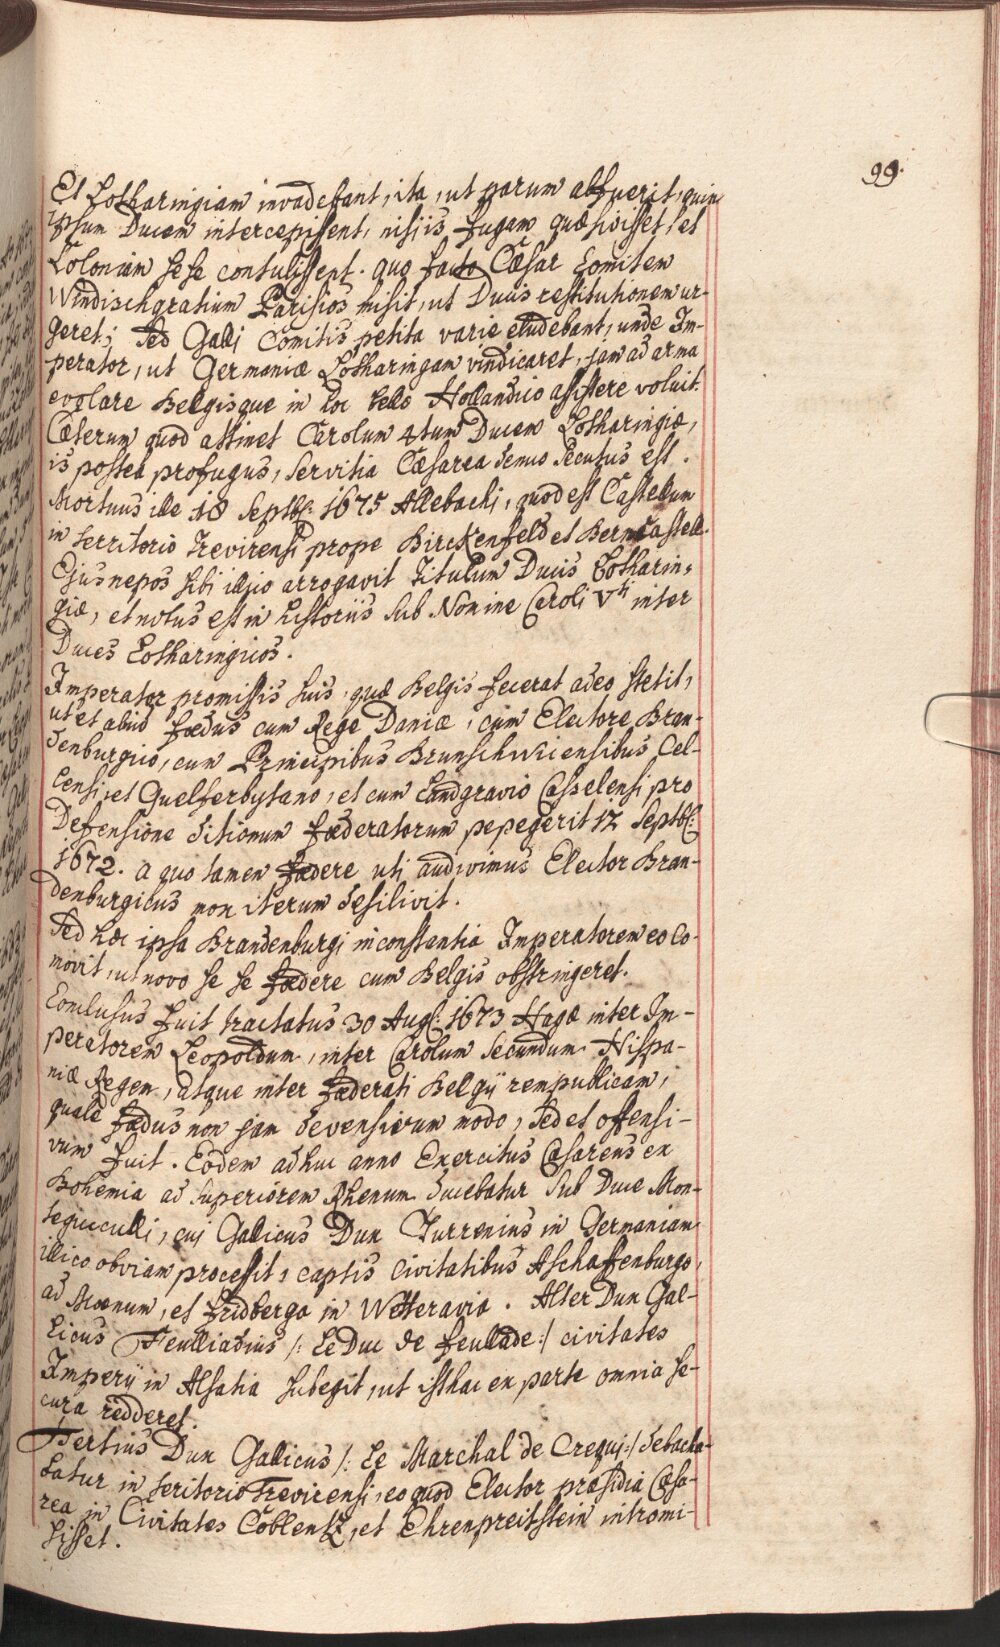 99.
Et Lotharingiam invadebant, ita, ut parum abfuerit, quin
ipsum Ducem intercepissent, nisi is fugam quæsivisset, et
Coloniam sese contulissent. quo facto Cæsar Comitem
Windischgratium Parisios misit, ut Ducis restitutionem ur-
geret; sed Galli Comitis petita varie eludebant, unde Im-
perator, ut Germaniæ Lotharingam vindicaret, jam ad arma
evolare Belgisque in hoc bello Hollandico assistere voluit.
Cæterum quod attinet Carolum 4tum Ducem Lotharingiæ,
is postea profugus, servitia Cæsarea demus secutus est.
Mortuus ille 18 Septbr: 1675 Allebachi, quod est Castellum
in territorio Trevirensi prope Birckenfeld et Berncastell.
Ejus nepos sibi illico arrogavit Titulum Ducis Lotharin-
giæ, et notus est in historiis sub Nomine Caroli Vti inter
Duces Lotharingicos.
Imperator promissis suis, quæ Belgis fecerat adeo stetit,
ut et aliud fœdus cum Rege Daniæ, cum Electore Bran-
denburgico, cum Principibus Brunschwicensibus Cel-
lensi, et Guelferbytano, et cum Landgravio Casselensi pro
Defensione ditionum fœderatorum pepegerit 12 Septbr:
1672. a quo tamen fœdere uti audivimus Elector Bran-
denburgicus non iterum desilivit.
Sed hæc ipsa Brandenburgi inconstantia Imperatorem eo co-
movit, ut novo se se fœdere cum Belgis obstringeret.
Conclusus fuit tractatus 30 Aug: 1673 Hagæ inter Im-
peratorem Leopoldum, inter Carolum Secundum Hispa-
niæ Regem, atque inter fœderati Belgii rempublicam,
quale fœdus non jam devensivum modo, sed et offensi-
vum fuit. Eodem adhuc anno Exercitus Cæsareus ex
Bohemia ad superiorem Rhenum ducebatur sub Duce Mon-
tecuculli, cui Gallicus Dux Turrenius in Germaniam
illico obviam processit, captis civitatibus Aschaffenburgo,
ad Moenum, et fridberga in Wetteravia. Alter Dux Gal-
licus Feulliadius /: Le Duc de feullade :/ civitates
Imperii in Alsatia subegit, ut isthac ex parte omnia se-
cura redderet.
Tertius Dux Gallicus /: Le Marchal de Crequi :/ debacha-
batur in teritorio Trevirensi, eo quod Elector præsidia Cæsa-
rea in Civitates Coblentz, et Ehrenpreitstein intromi-
sisset.